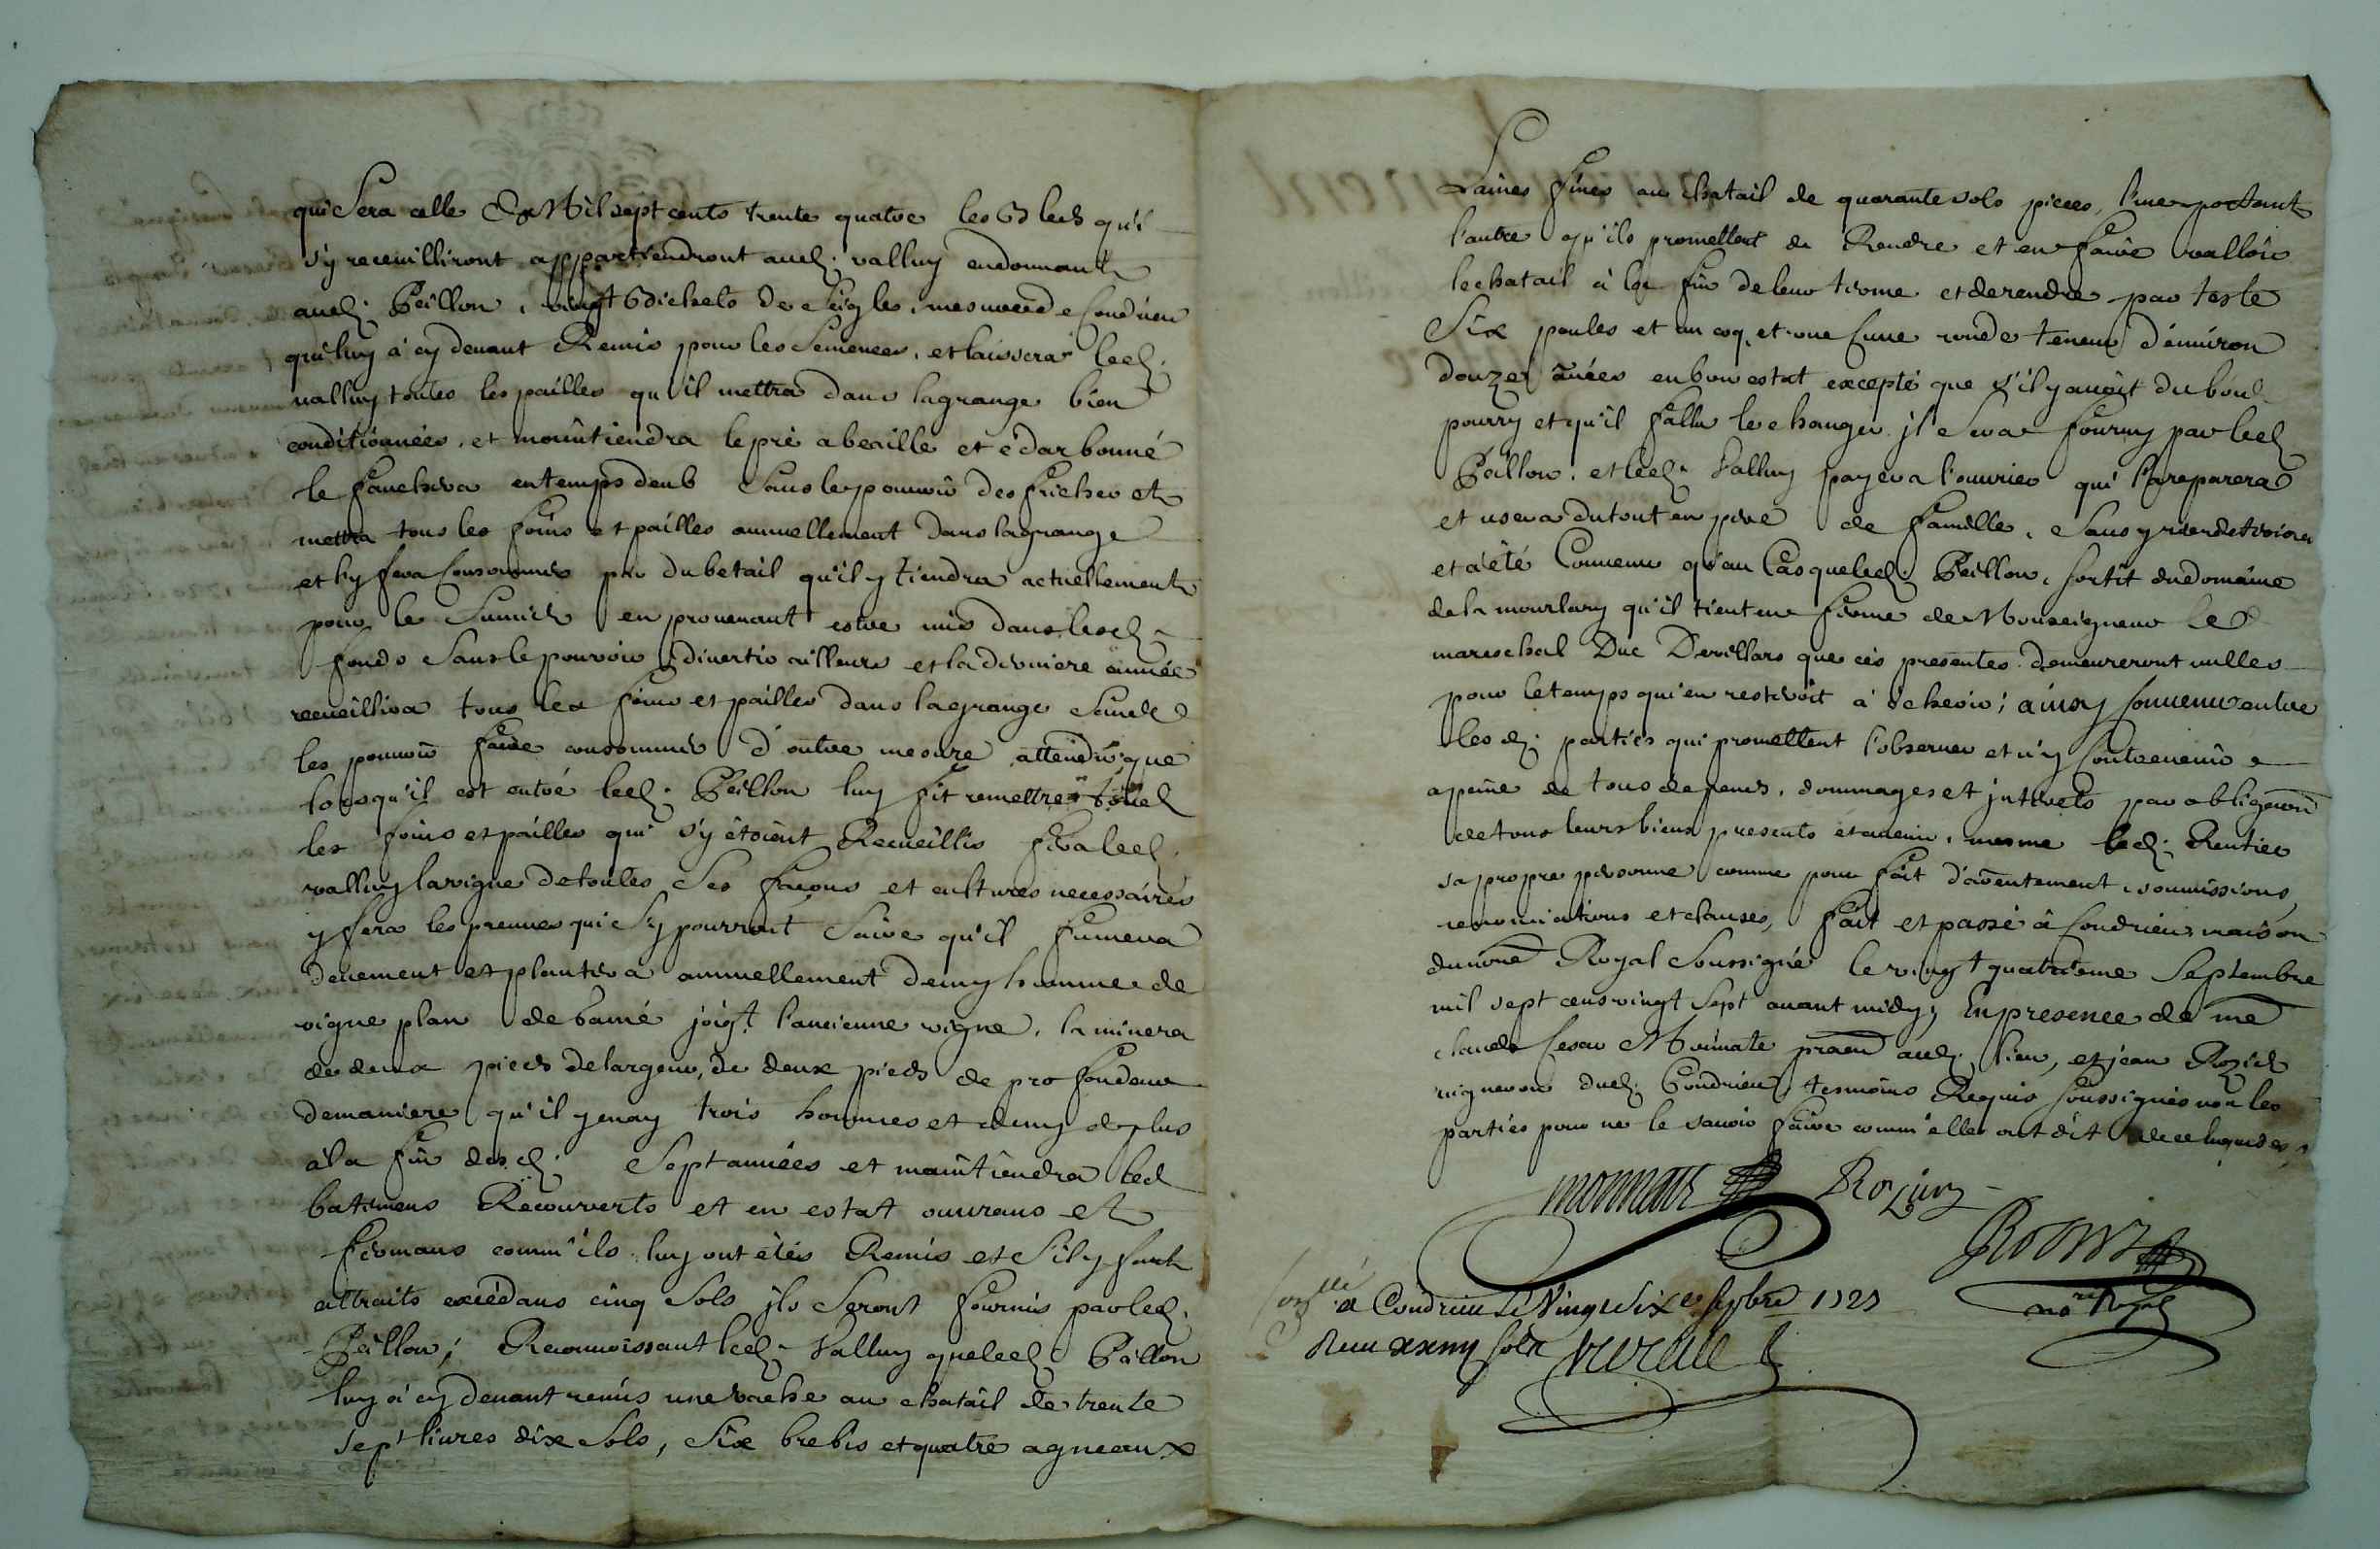 qui sera celle de Mil sept cents trente quatre les bleds qui
s'y receuilliront appartiendront aud. valluy en donnant
aud. Peillon, vingt bichets de seigle, mesure de Condrieu
qui luy a cy devant Remis pour les semences, et laissera led.
valluy toutes les pailles qu'il mettra dans la grange bien
conditionnées, et maintiendra le pré abeaillé et édarbonné
le fauchera en temps deub sans le pouvoir desfricher et
mettra tous les foins et pailles annuellement dans la grange
et l'y fera consommer par du betail qu'il y tiendra actuellement
pour le fumier en provenant estre mis dans lesd.
fonds sans le pouvoir divertir ailleurs et la derniere année
receuillira tous les foins et pailles dans la grange sans
les pouvoir faire consommer d'outre mesure attendu que
lorsqu'il est entré led. Peillon luy fit remettre
les foins et pailles qui s'y étoient Receuillis fera led.
valluy la vigne de toutes ses façons et cultures necessaires
y fera les preuves qui s'y pourront faire qu'il fumera
deuement et plantera annuellement demy hommée de
vigne plan de joigt. l'ancienne vigne, la minera
de deux pieds de largeur, de deux pieds de profondeur
de maniere qu'il y en ay trois hommes et demy de plus
à la fin desd. sept années et maintiendra led
batimens Recouverts et en estat ouvrans et
fermans comm'ils luy ont étés Remis et s'il y faut
attraits excédans cinq sols ils seront fournis par led.
Peillon; Reconnoissant led. valluy que led. Peillon
luy a cy devant remis une vache au chatail de trente
sept livres dix sols, six brebis et quatre agneaux
Laines fines au chatail de quarante sols pieces, l'une portant
l'autre qu'ils promettent de Rendre et en faire valloir
le chatail à la fin de leur terme et de rendre par teste
six poules et un coq, et une cuve ronde teneur d'environ
douze anées en bon estat excepté que s'il y avoit du bois
pourry et qu'il fallu le changer il sera fourny par led
Peillon, et led. Valluy payera l'ouvrier qui la reparera
et usera du tout en pere de famille, sans y rien deteriorer
et a été Convenu qu'au Cas que led. Peillon, sortit du domaine
de la mourlary qu'il tient en ferme de Monseigneur le
mareschal Duc Devillars que ces presentes demeureront nulles
pour le temps qui en resteroit à écheoir; ainsy Convenu entre
lesd. parties qui promettent l'observer et n'y Contrevenir
a peine de tous depens, dommages et interets par obligaon
de tous leurs biens presents et avenir, mesme led. Rentier
sa propre personne comme pour fait d'aventement, soumissions,
renonciations et clauses, fait et passé à Condrieu maison
du nore Royal soussigné le vingt quatrieme Septembre
mil sept cens vingt sept avant midy, En presence de me
claude Cesar Monnate praen aud. lieu, et jean Rozier
vigneron dud. Condrieu, tesmoins Requis soussignés non les
parties pour ne le savoir faire comm'elles ont dit de ce enquises,
monnate Rozier
nore Royal
Conlé a Condrieu Le Vingt Six e 7bre 1727
Receu xxiiij sols